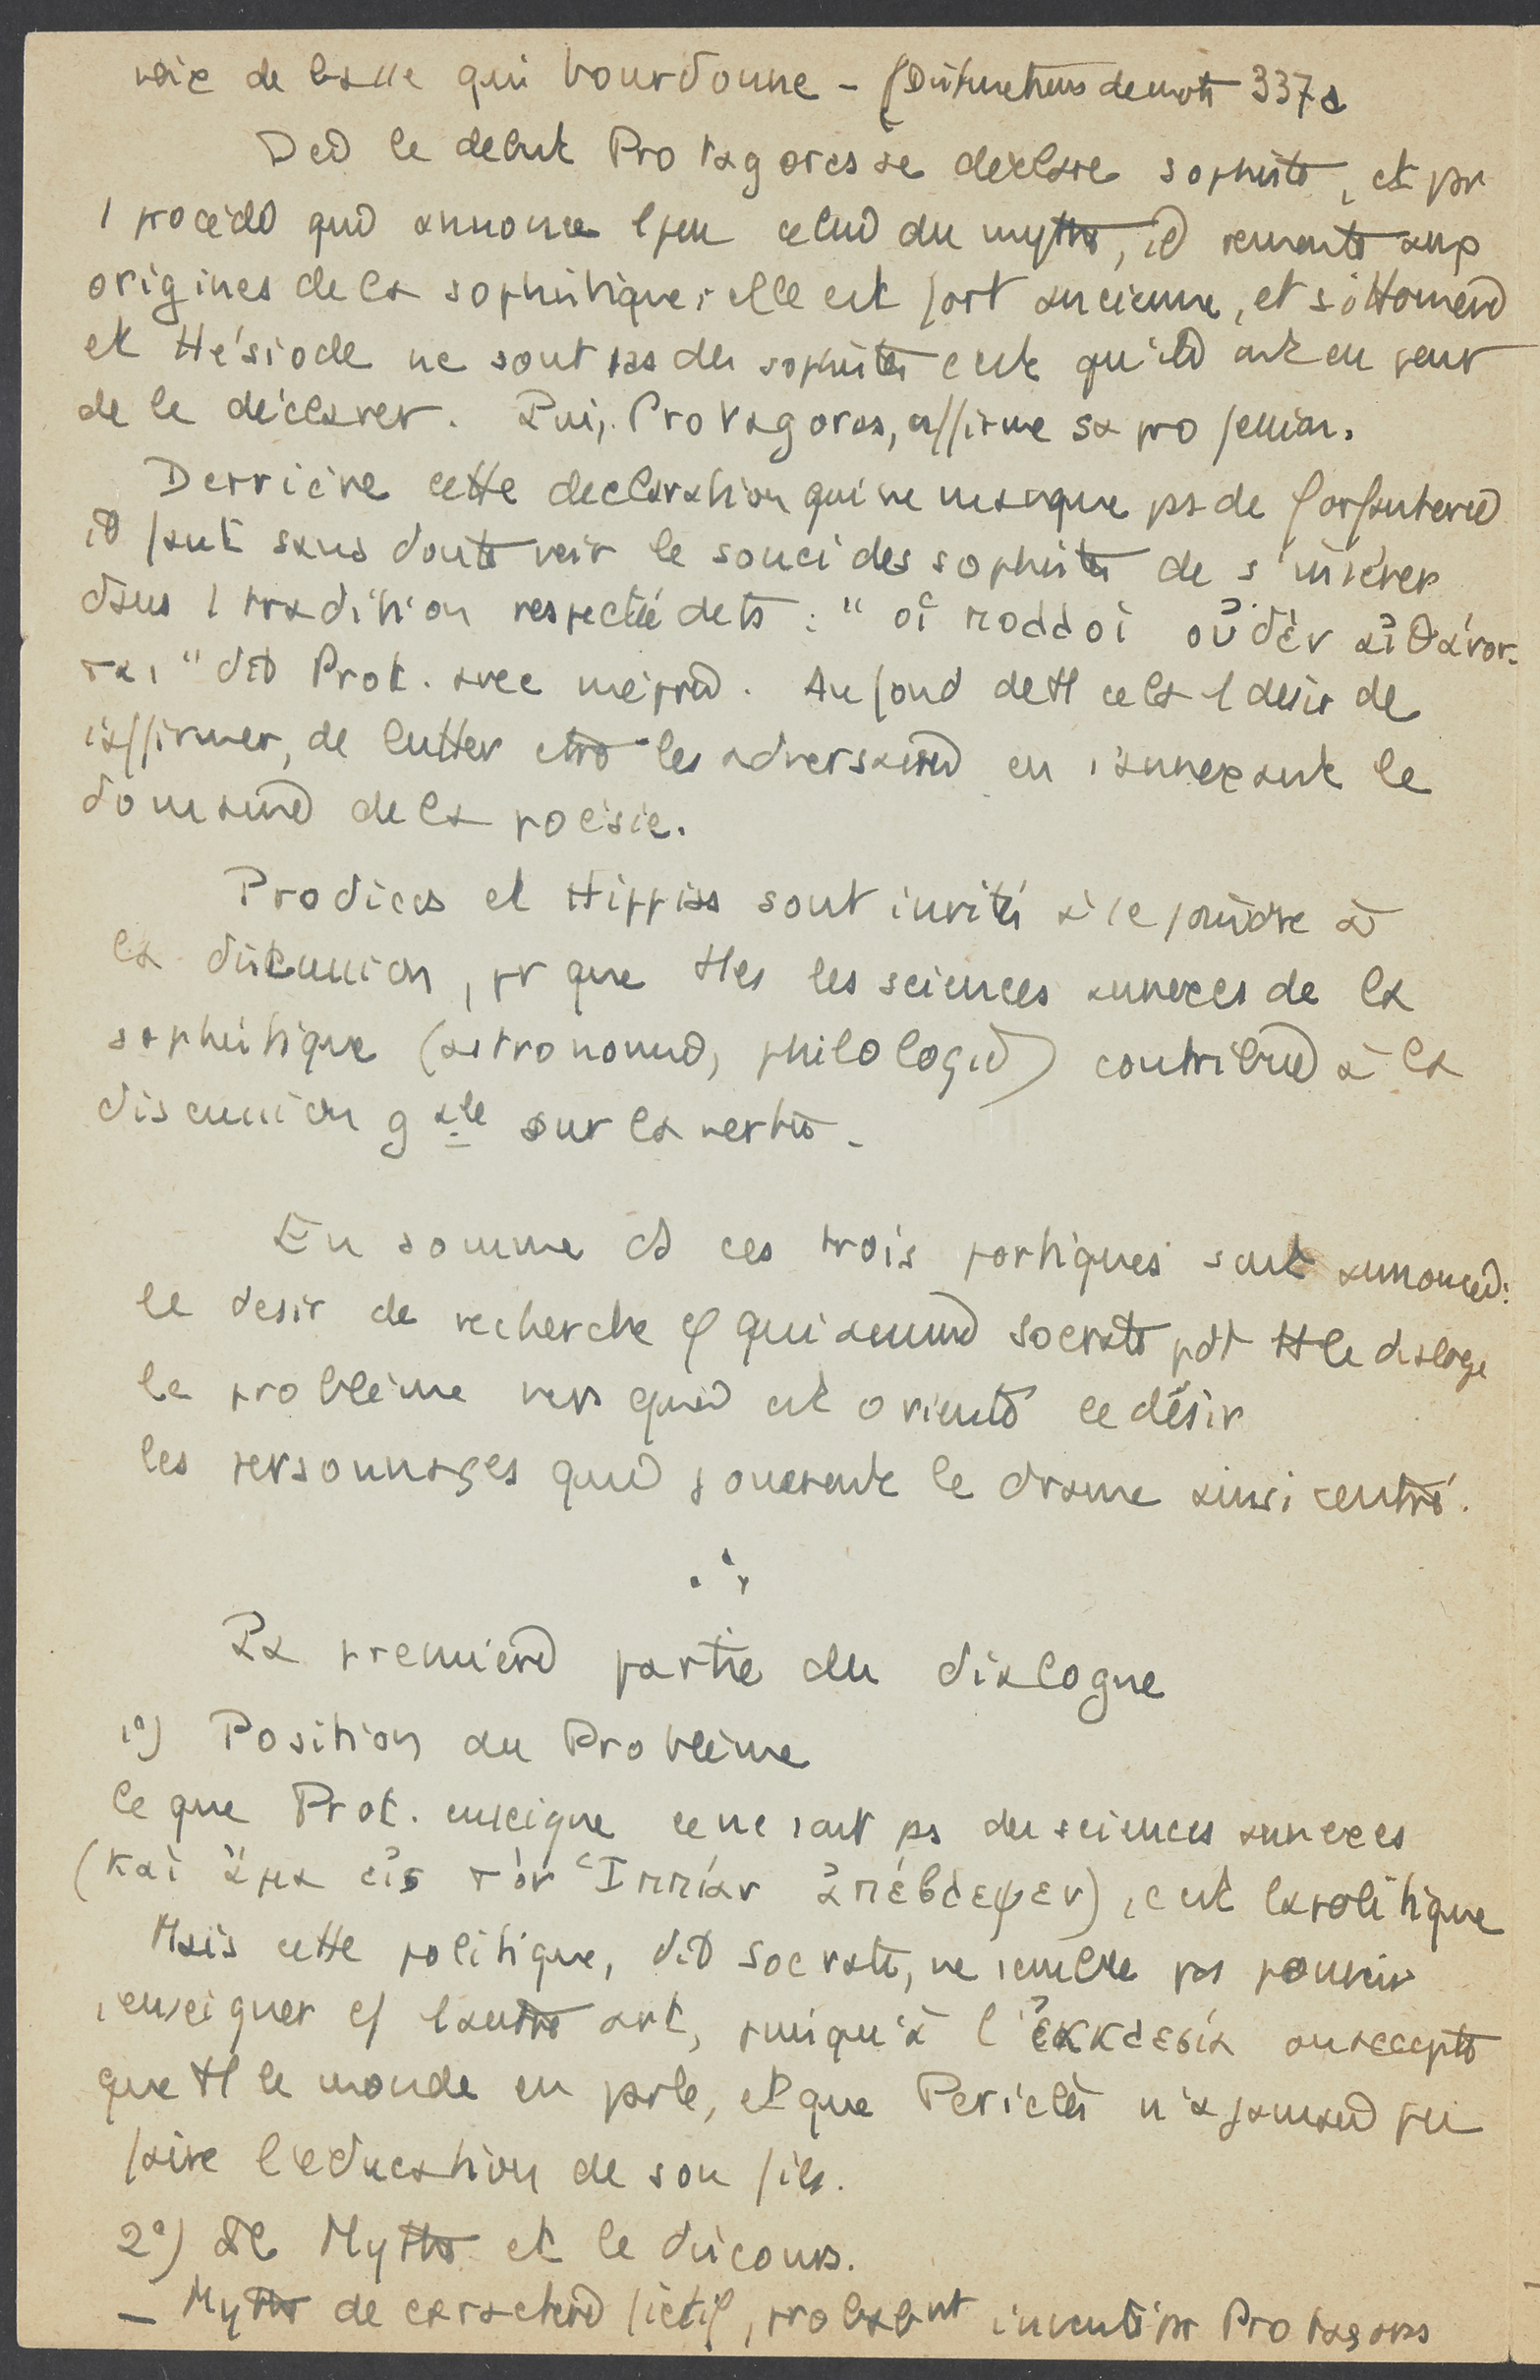 voix de basse qui bourdonne - (Distinctions de mots 337a
Dès le début Protagoras se déclare sophiste, et par
1 procédé qui annonce 1 peu celui du mythe, il remonte aux
origines de la sophistique : elle est fort ancienne, et si Homère
et Hésiode ne sont pas des sophistes c'est qu'ils ont eu peur
de le déclarer. Lui, Protagoras, affirme sa profession.
Derrière cette declaration qui ne manque pas de forfanterie
il faut sans doute voir le souci des sophistes de s'insérer
dans 1 tradition respectée de ts : "οἱ πολλοὶ οὐδὲν αἰσθάνον-
ται" dit Prot. avec mépris. Au fond de tt cela 1 desir de
s'affirmer, de lutter ctre les adversaires en s'annexant le
domaine de la poésie.
Prodicos et Hippias sont invités à se joindre à
la discussion, pr que ttes les sciences annexes de la
sophistique (astronomie, philologie) contribue à la
discussion gale sur la vertu.
En somme ds ces trois portiques sont annoncés :
le desir de recherche φ qui anime Socrate pdt tt le dialogue
le problème vers quoi est orienté ce désir
les personnages qui joueront le drame ainsi centré.
∴
La première partie du dialogue
1°) Position du Problème
Ce que Prot. enseigne ce ne sont pas des sciences annexes
(καὶ ἅμα εἰς τὸν Ἱππίαν ἀπέβλεψεν), c'est la politique
Mais cette politique, dit Socrate, ne semble pas pouvoir
s'enseigner cf l'autre art, puisqu'à l'ἐκκλεσία on accepte
que tt le monde en parle, et que Periclès n'a jamais pu
faire l'education de son fils.
2°) Le Mythe et le discours.
- Mythe de caractère fictif, probablnt inventé par Protagoras